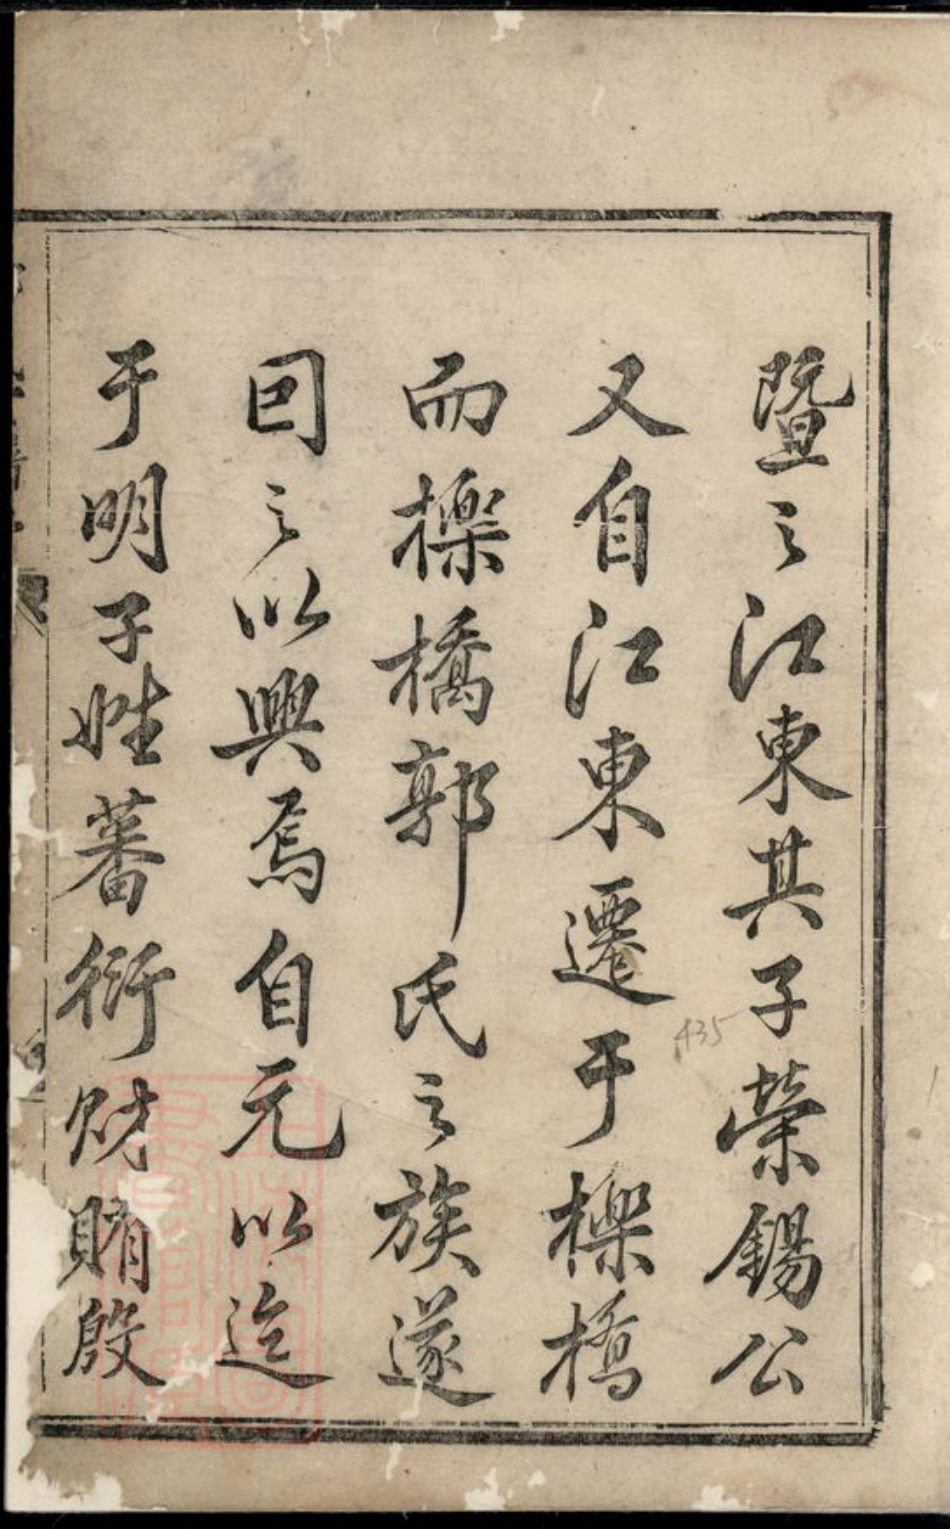 暨之江東其子榮錫公
又自江東遷于櫟橋
而櫟橋郭氏之族遂
因之以興焉自元以迄
于明子姓蕃衍財賄殷
435